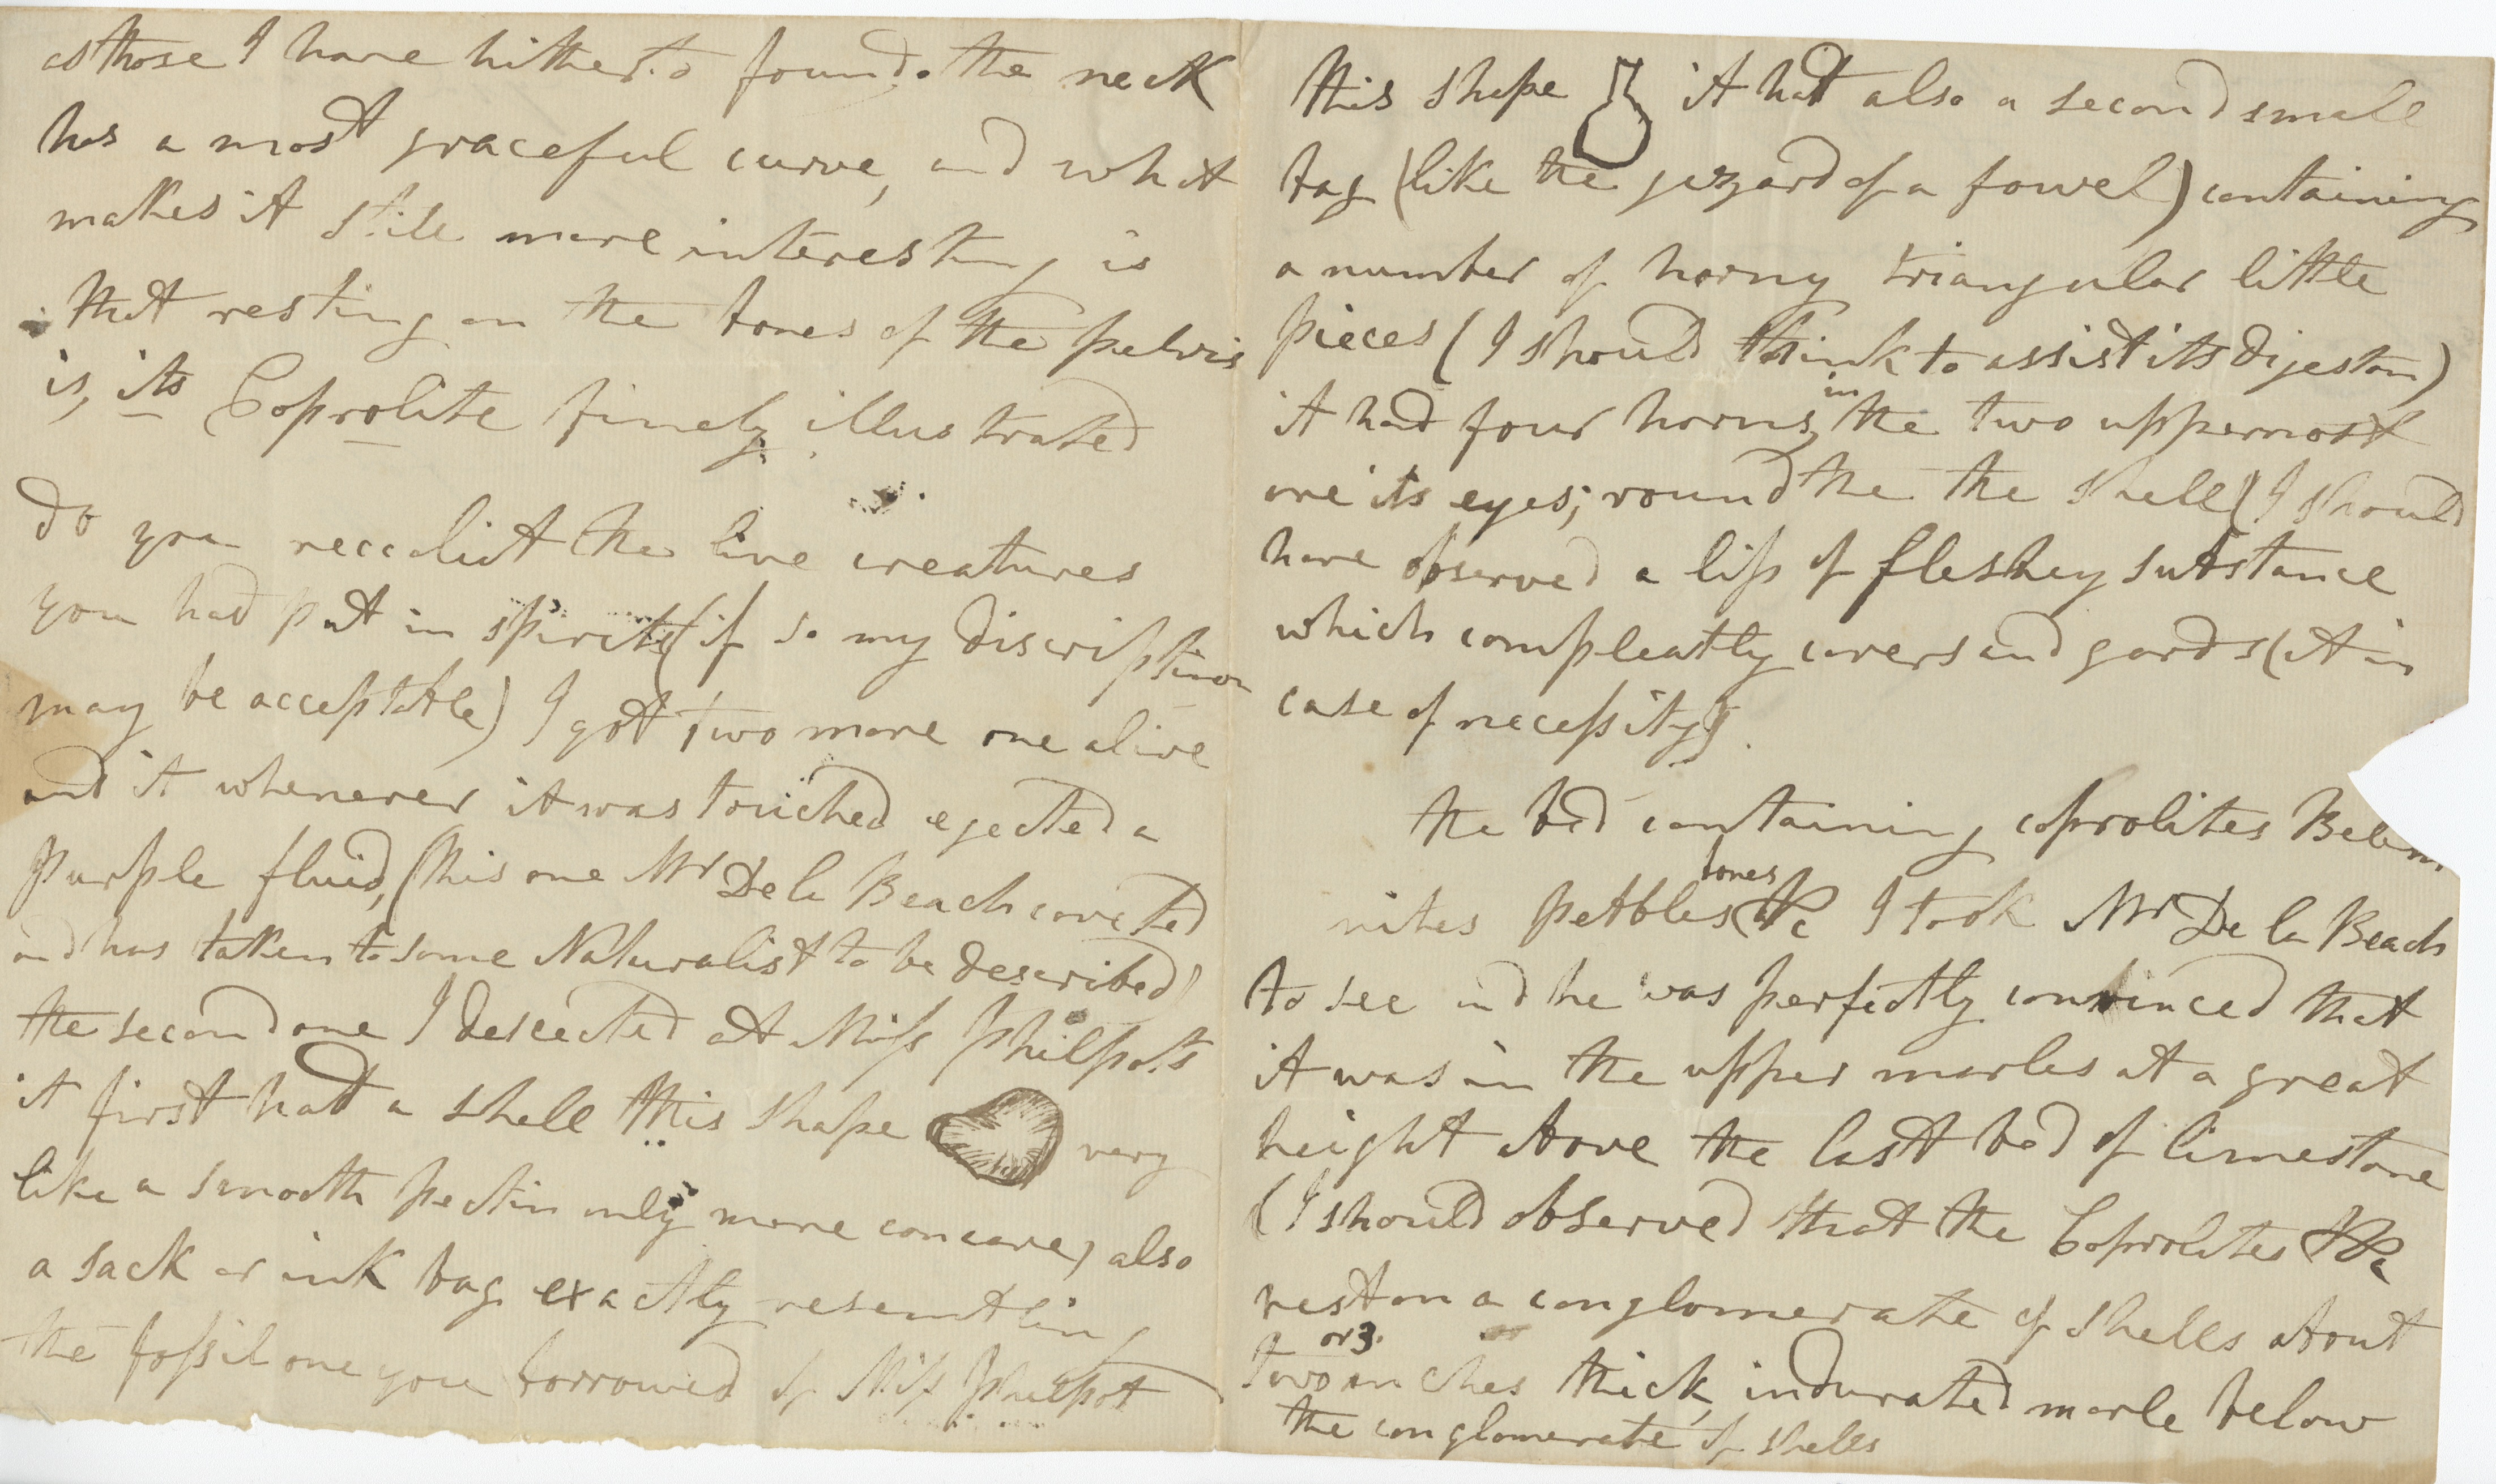 as those I have hitherto found. the neck
has a most graceful curve, and what
makes it still more interesting is
that resting on the bones of the pelvis
is, its Coprolite finely illustrated
do you recolict the live creatures
you had put in spirits (if so my discription
may be acceptable) I got two more one alive
and it whenever it was touched ejected a
purple fluid, (this one Mr De la Beach coveted
and has taken to some Naturalist to be described)
the second one I desected at Miss Philpots
it first had a shell this shape very
like a smooth pectin only more concave, also
a sack or ink bag exactly resembling
the fossil one you borrowed of Miss Philpot
this shape it had also a second small
bag (like the gizzard of a fowel) containing
a number of horny triangular little
pieces (I should think to assist its digeston)
it had four horns, in the two uppermost
are its eyes; round the the shell (I should
have observed a lip of fleshey substance
which compleatly covers and gards (it in
case of necessity).
the bed containing coprolites Belem
nites pebbles bones &c I took Mr De la Beach
to see and he was perfectly convinced that
it was in the upper marles at a great
height above the last bed of limestone
(I should observed that the Coprolites &c
rest on a conglomerate of shells about
two or 3. inches thick, indurated marle below
the conglomerate of shells